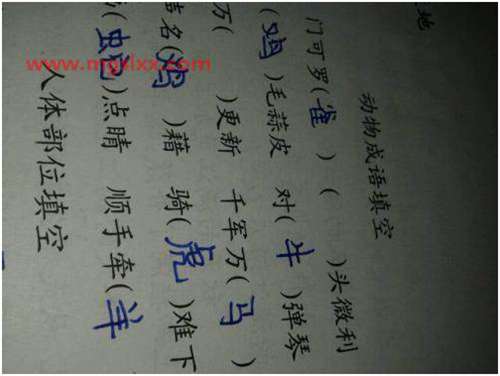 地
动物成语填空
门可罗(雀) ( )头微利
(鸡)毛蒜皮 对(牛)弹琴
万( )更新 千军万(马)
名(鸡)藉 骑(虎)难下
)点睛 顺手牵(羊
人体部位填空